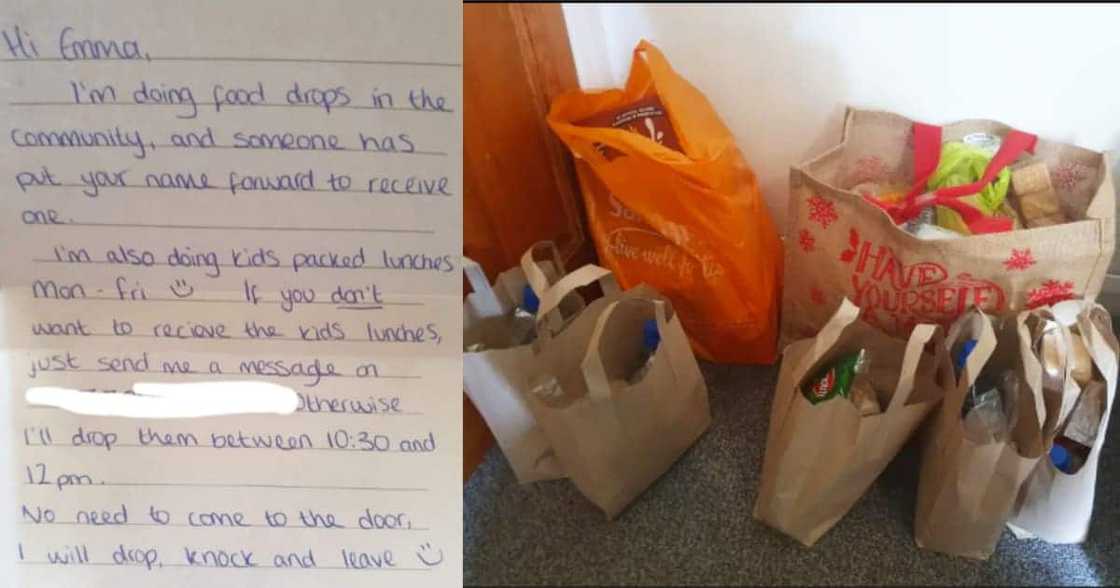 Hi Emma,
I'm doing food drops in the
community, and someone has
put your name forward to receive
one.
I'm also doing kids packed lunches
Mon - Fri ☺ If you don't
want to reciave the kids lunches,
just send me a message on
Otherwise
I'll drop them between 10:30 and
12pm.
No need to come to the door,
I will drop, knock and leave ☺
live well for less
HAVE
YOURSELF